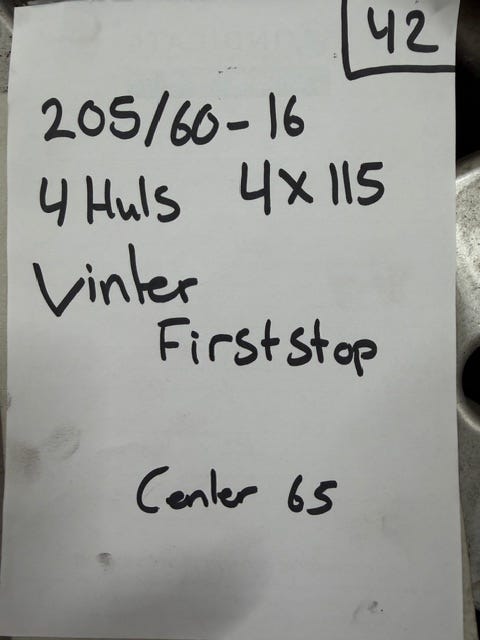 42
205/60-16
4 Huls 4x115
Vinter
Firststop
Center 65